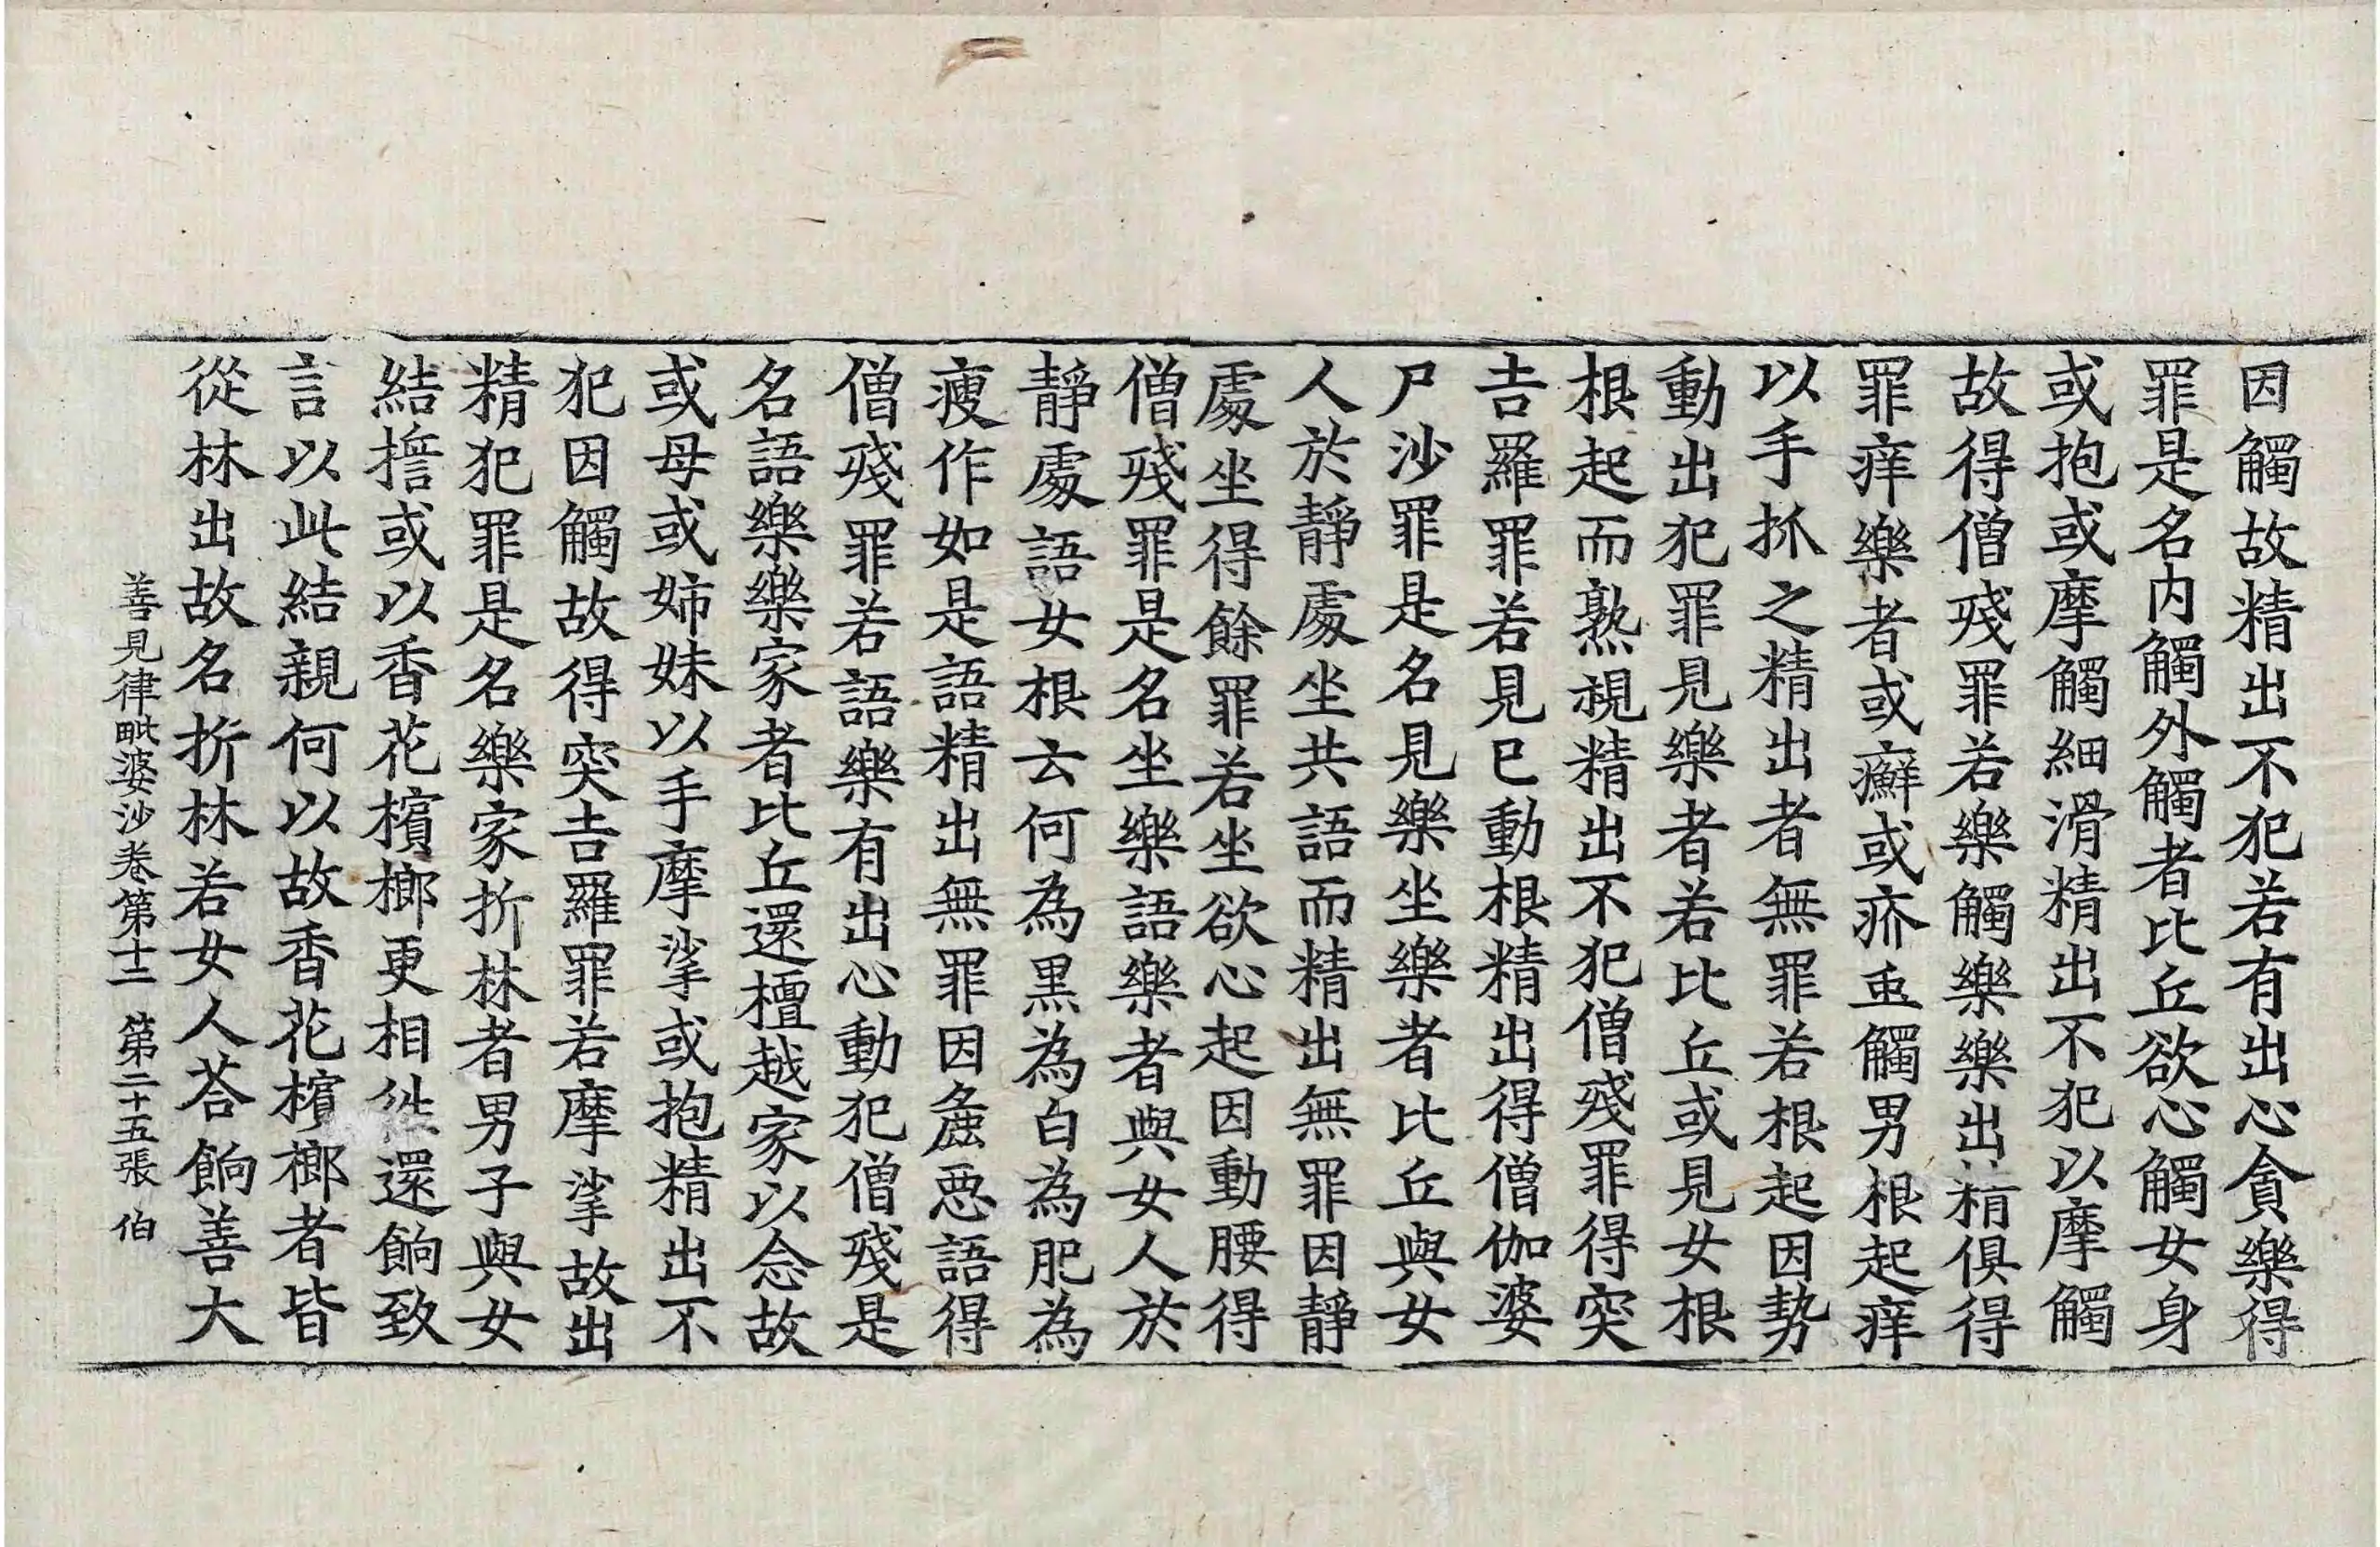 因觸故精出不犯若有出心貪樂得
罪是名内觸外觸者比丘欲心觸女身
或抱或摩觸細滑精出不犯以摩觸
故得僧殘罪若樂觸樂樂出精俱得
罪痒樂者或癬或疥䖝觸男根起痒
以手抓之精出者無罪若根起因勢
動出犯罪見樂者若比丘或見女根
根起而熟視精出不犯僧殘罪得突
吉羅罪若見已動根精出得僧伽婆
尸沙罪是名見樂坐樂者比丘與女
人於靜處坐共語而精出無罪因靜
處坐得餘罪若坐欲心起因動腰得
僧殘罪是名坐樂語樂者與女人於
靜處語女根云何為黑為白為肥為
瘦作如是語精出無罪因麁惡語得
僧殘罪若語樂有出心動犯僧殘是
名語樂樂家者比丘還檀越家以念故
或母或姊妹以手摩挲或抱精出不
犯因觸故得突吉羅罪若摩挲故出
精犯罪是名樂家折林者男子與女
結擔或以香花檳榔更相往還餉致
言以此結親何以故香花檳榔者皆
從林出故名折林若女人荅餉善大
善見律毗婆沙卷第十二 第二十五張 伯